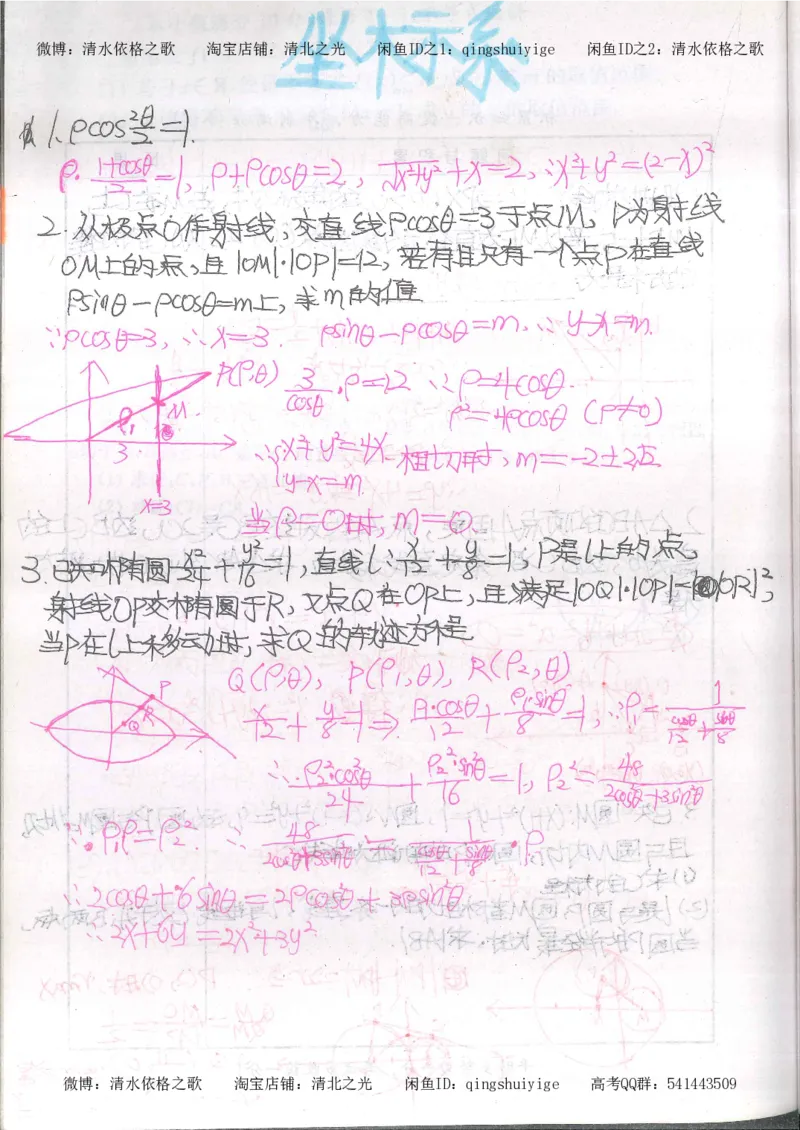 微博：清水依格之歌 淘宝店铺：清北之光 闲鱼ID之1：qingshuiyige 闲鱼ID之2：清水依格之歌
坐标系
1. ρcos²θ/2=1.
ρ·(1+cosθ)/2=1, ρ+ρcosθ=2, √(x²+y²)+x=2, ∴x²+y²=(2-x)²
2. 从极点O作射线,交直线ρcosθ=3于点M, P为射线
OM上的点,且|OM|·|OP|=12, 若有且只有一个点P在直线
ρsinθ-ρcosθ=m上,求m的值
∵ρcosθ=3, ∴x=3. ρsinθ-ρcosθ=m, ∴y-x=m.
P(ρ,θ) 3/cosθ·ρ=12 ∴ρ=4cosθ.
ρ²=4ρcosθ (ρ≠0)
ρ₁ M
3
x=3
∴{x²+y²=4x
y-x=m. 相切时, m=-2±2√2
当ρ=0时, m=0
3. 已知椭圆x²/24+y²/16=1, 直线l: x/12+y/8=1, P是l上的点,
射线OP交椭圆于R, 又点Q在OP上,且满足|OQ|·|OP|=|OR|²,
当P在l上移动时,求Q的轨迹方程
Q(ρ,θ), P(ρ₁,θ), R(ρ₂,θ)
P R Q
x/12+y/8=1⇒ρ₁cosθ/12+ρ₁sinθ/8=1, ∴ρ₁=1/(cosθ/12+sinθ/8)
∴ρ₂²cos²θ/24+ρ₂²sin²θ/16=1, ρ₂²=48/(2cos²θ+3sin²θ)
∵ρ₁ρ=ρ₂² ∴48/(2cos²θ+3sin²θ)=1/(cosθ/12+sinθ/8)·ρ
∴2x+6y=2x²+3y²
微博：清水依格之歌 淘宝店铺：清北之光 闲鱼ID：qingshuiyige 高考QQ群：541443509